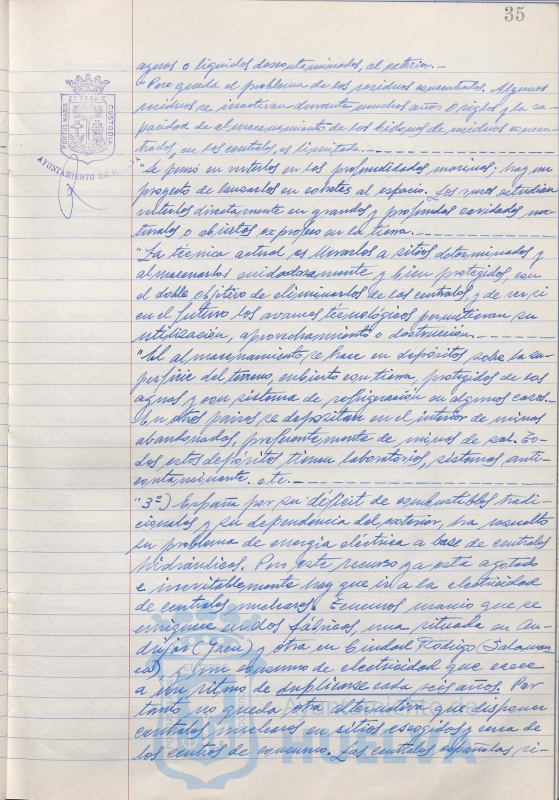 35
aguas o líquidos descontaminados, al exterior.-
"Pero queda el problema de los residuos concentrados. Algunos
residuos se inactivan durante muchos años o siglos y la ca
pacidad de almacenamiento de los bidones de residuos concen
trados, en las centrales, es limitada.
"Se pensó en verterlos en las profundidades marinas; hay un
proyecto de lanzarlos en cohetes al espacio. Los rusos estudian
verterlos directamente en grandes y profundas cavidades na
turales o abiertos exprofeso en la tierra.
"La técnica actual es llevarlos a sitios determinados y
almacenarlos cuidadosamente y bien protegidos, con
el doble objetivo de eliminarlos de las centrales y de ver si
en el futuro los avances tecnológicos permitieran su
utilización, aprovechamiento o destrucción.
"El almacenamiento se hace en depósitos sobre la su-
perficie del terreno, cubierto con tierra, protegidos de las
aguas y con sistema de refrigeración en algunos casos.
En otros países se depositan en el interior de minas
abandonadas, preferentemente de minas de sal. To-
dos estos depósitos tienen laboratorios, sistemas anti-
contaminante, etc.
"3º) España por su déficit de combustibles tradi-
cionales y su dependencia del exterior, ha resuelto
su problema de energía eléctrica a base de centrales
hidráulicas. Pero este recurso ya está agotado
e inevitablemente hay que ir a la electricidad
de centrales nucleares. Tenemos uranio que se
enriquece en dos fábricas, una situada en An-
dújar (Jaén) y otra en Ciudad Rodrigo (Salaman
ca) y un consumo de electricidad que crece
a un ritmo de duplicarse cada seis años. Por
tanto no queda otra alternativa que disponer
centrales nucleares en sitios escogidos y cerca de
los centros de consumo. Las centrales españolas si-
PORTUS MARIS
ET TERRAE
CUSTODIA
AYUNTAMIENTO DE HUELVA
Ayuntamiento de
HUELVA